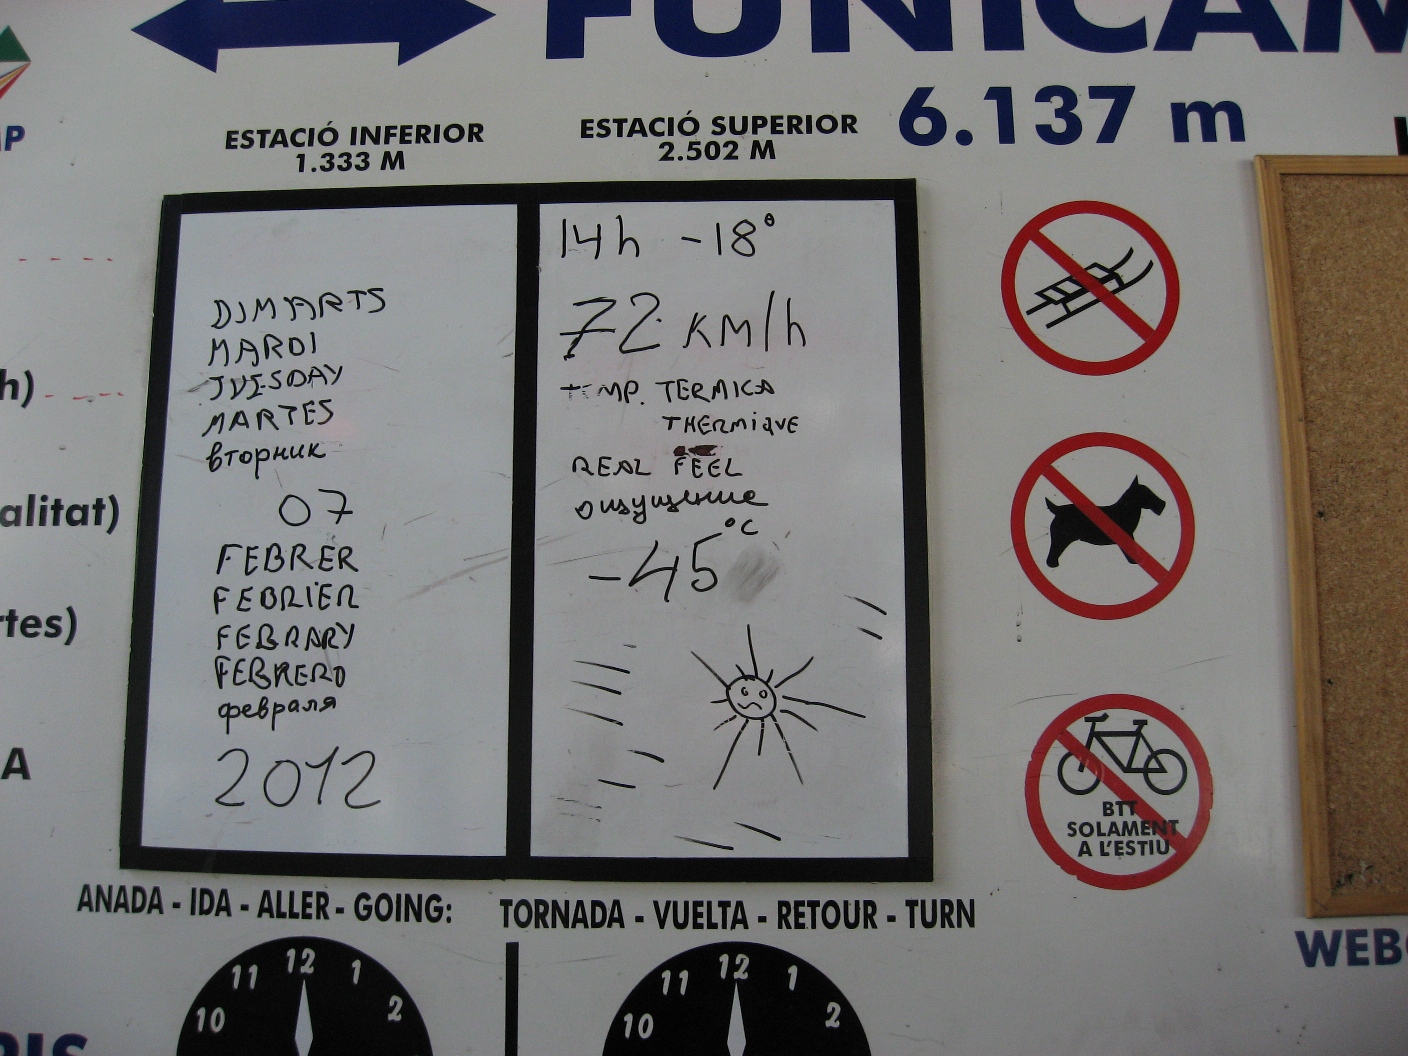 6.137 m
ESTACIÓ INFERIOR
1.333 M
ESTACIÓ SUPERIOR
2.502 M
DIMARTS
MARDI
TUESDAY
MARTES
вторник
07
FEBRER
FEBRIER
FEBRARY
FEBRERO
февраля
2012
14h -18°
72 KM/h
TEMP. TERMICA
THERMIQUE
REAL FEEL
ощущение
-45 °C
BTT
SOLAMENT
A L'ESTIU
h)
alitat)
rtes)
A
ANADA - IDA - ALLER - GOING:
TORNADA - VUELTA - RETOUR - TURN
10 11 12 1 2
10 11 12 1 2